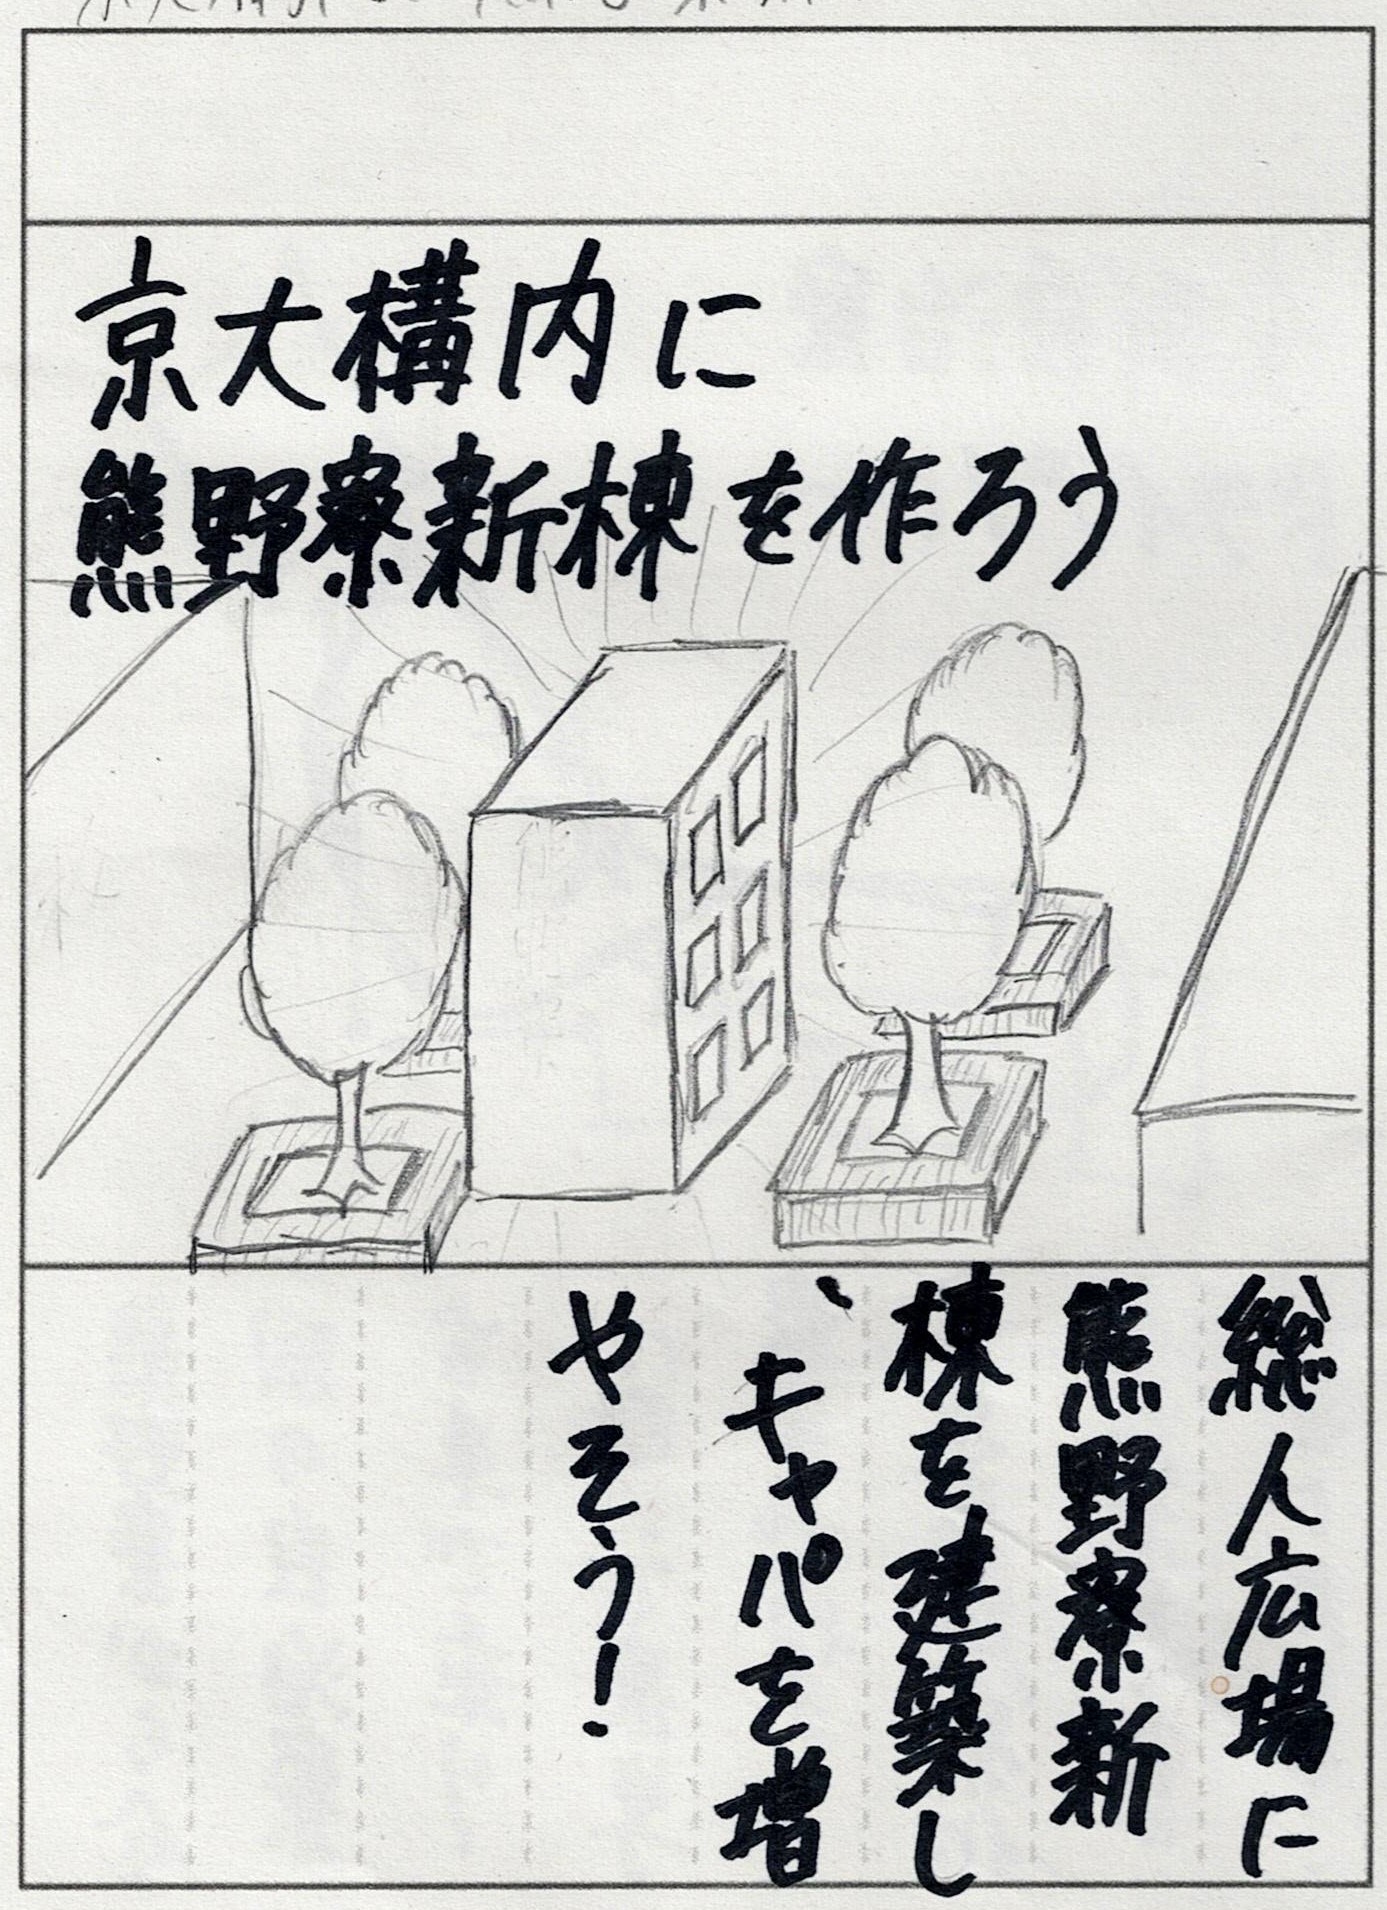 京大構内に
熊野寮新棟を作ろう
総人広場に
熊野寮新
棟を建築し
、キャパを増
やそう!